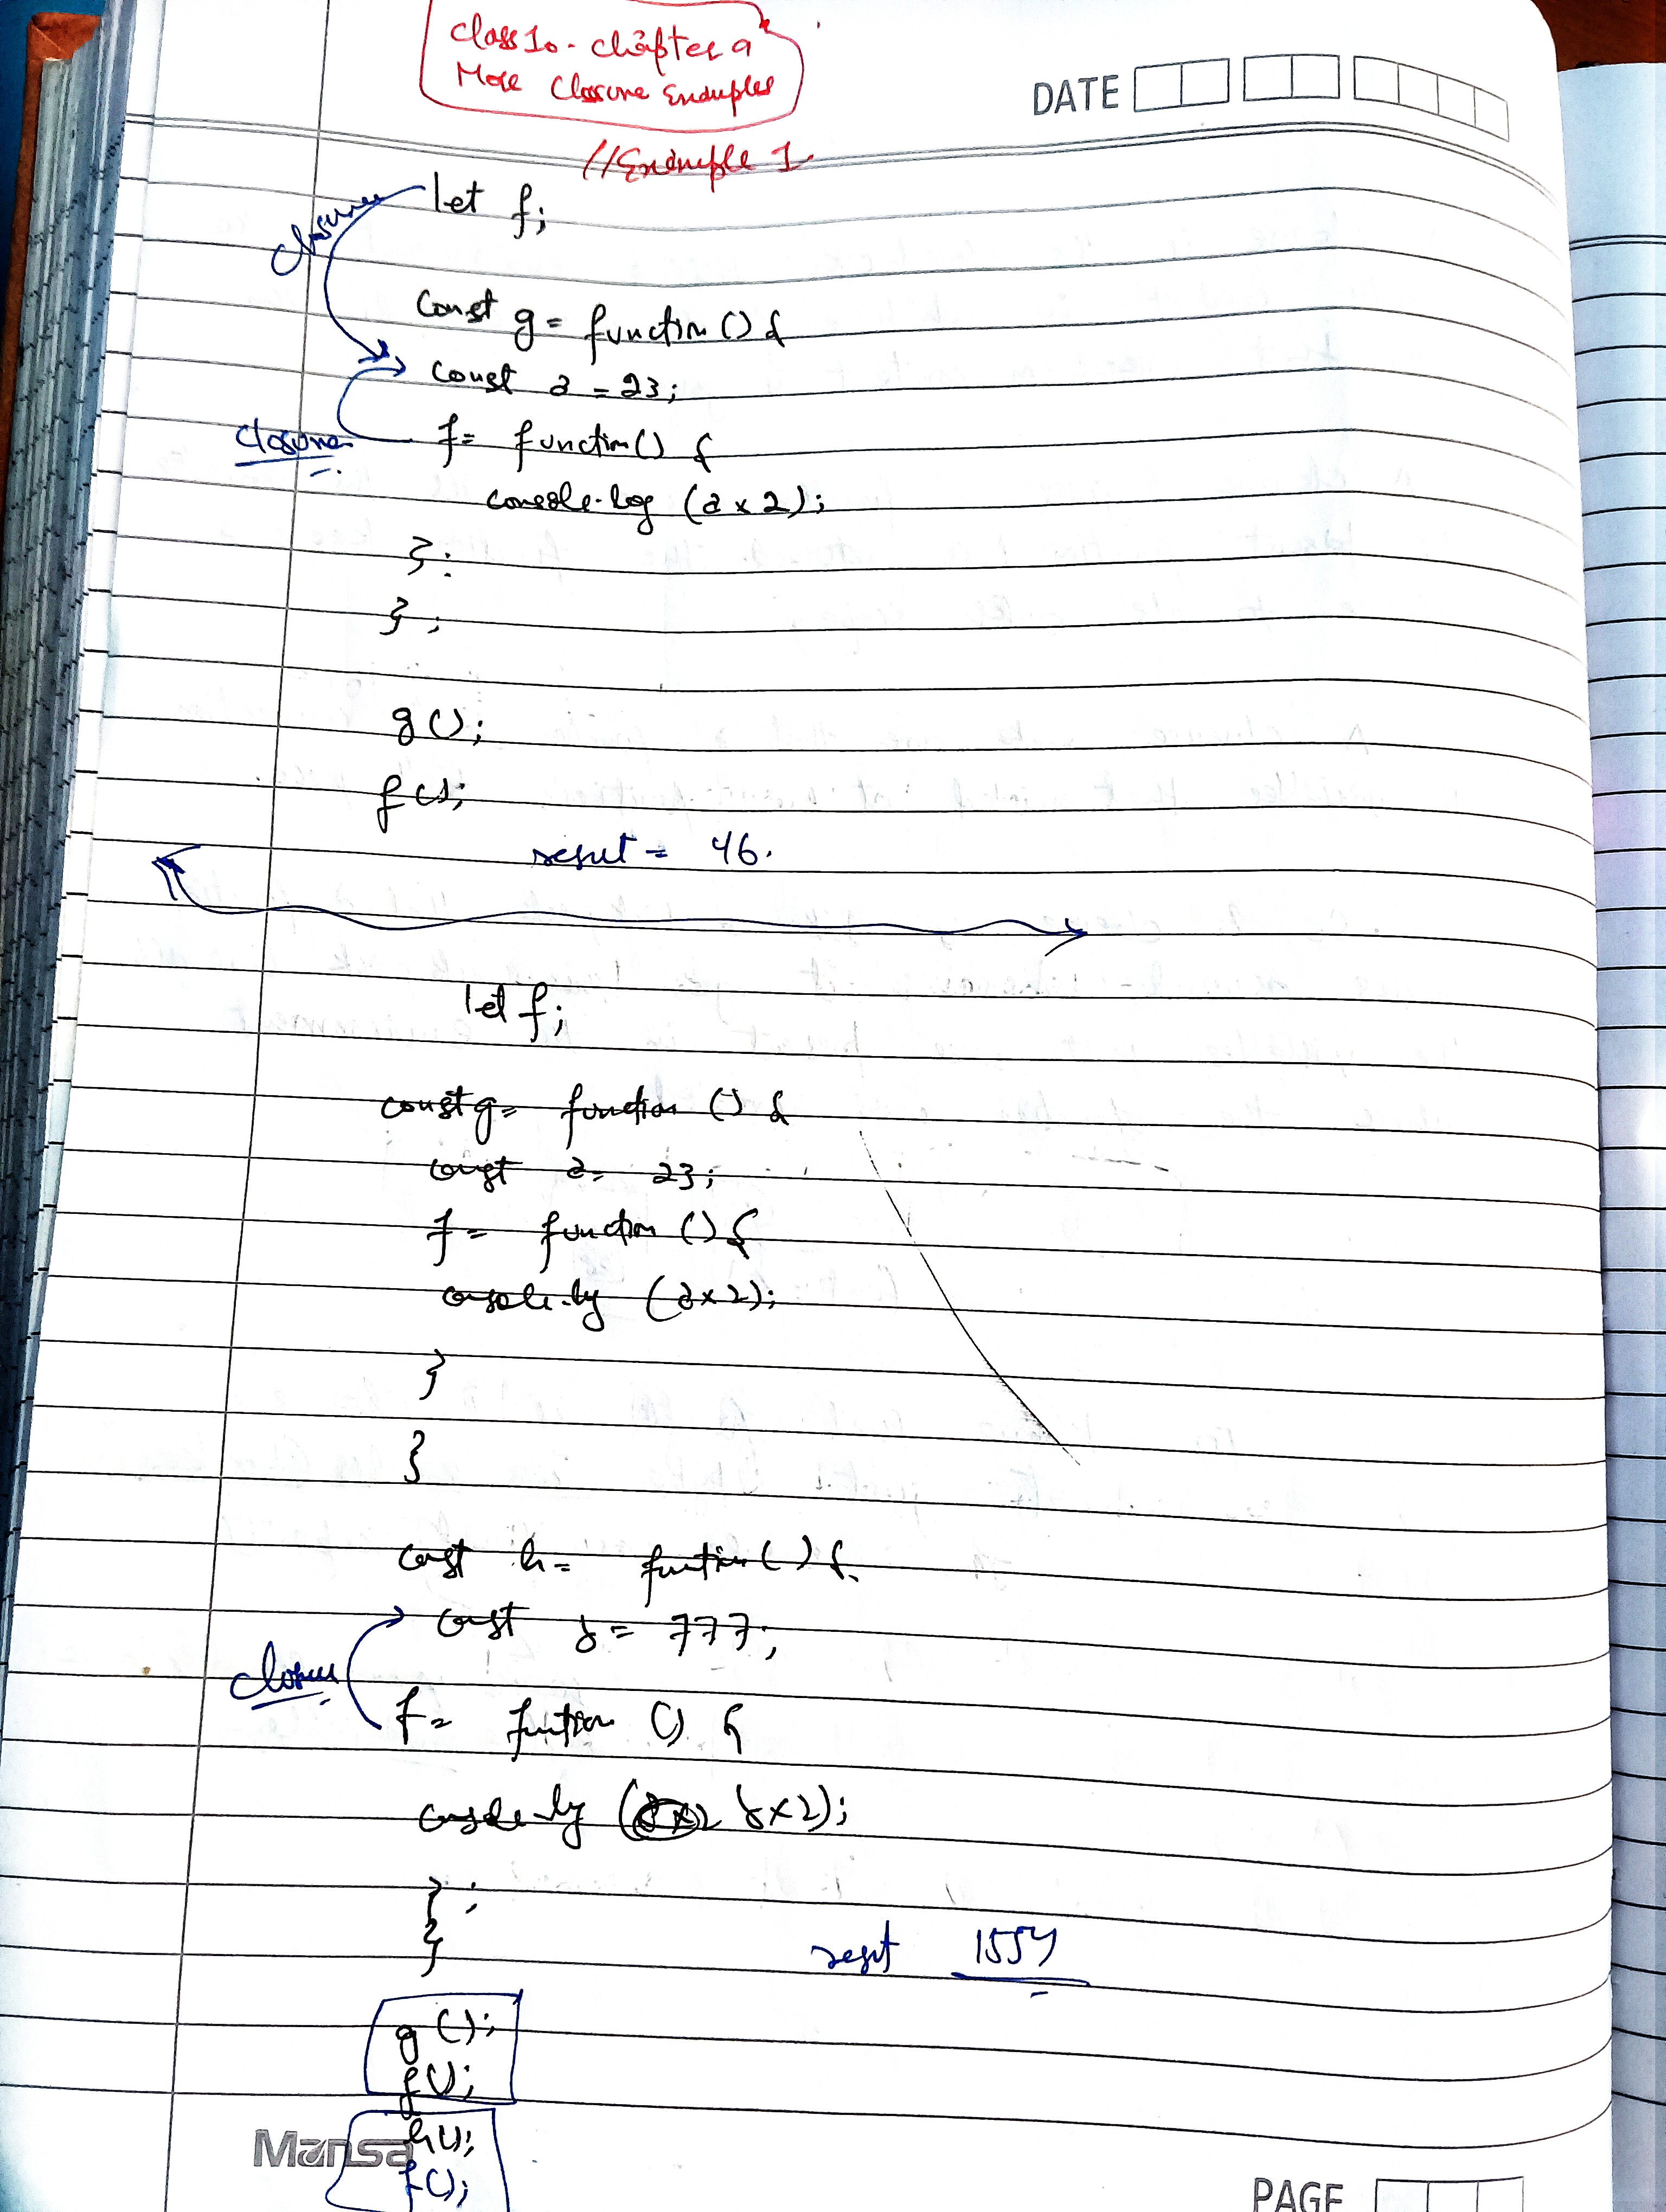 class 10 - chapter 9
More Closure Examples
DATE
// Example 1
let f;
closure
const g = function () {
const a = 23;
closure
f = function () {
console.log (a x 2);
};
};
g();
f();
result = 46.
let f;
const g = function () {
const a = 23;
f = function () {
console.log (a x 2);
}
}
const h = function () {
const b = 777;
closure
f = function () {
console.log (b x 2);
};
}
result 1554
g();
f();
h();
f();
Mansa
PAGE